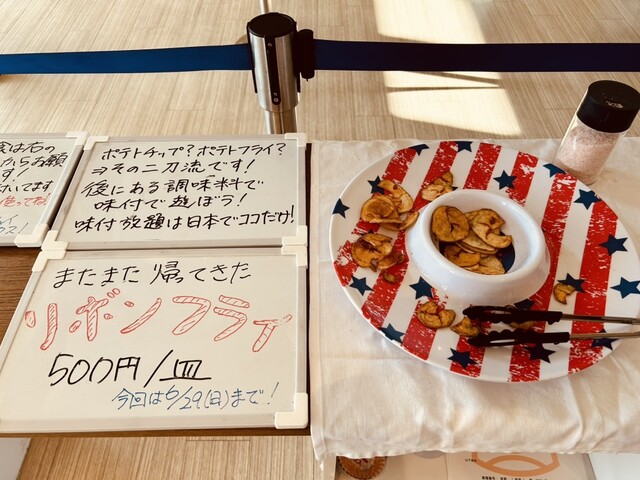 ポテトチップ?ポテトフライ?
ヨその二刀流です!
後にある調味料で
味付で遊ぼう!
味付放題は日本でココだけ!
またまた帰ってきた
リボンフライ
500円/皿
今回は6/29(日)まで!
からお願
す!